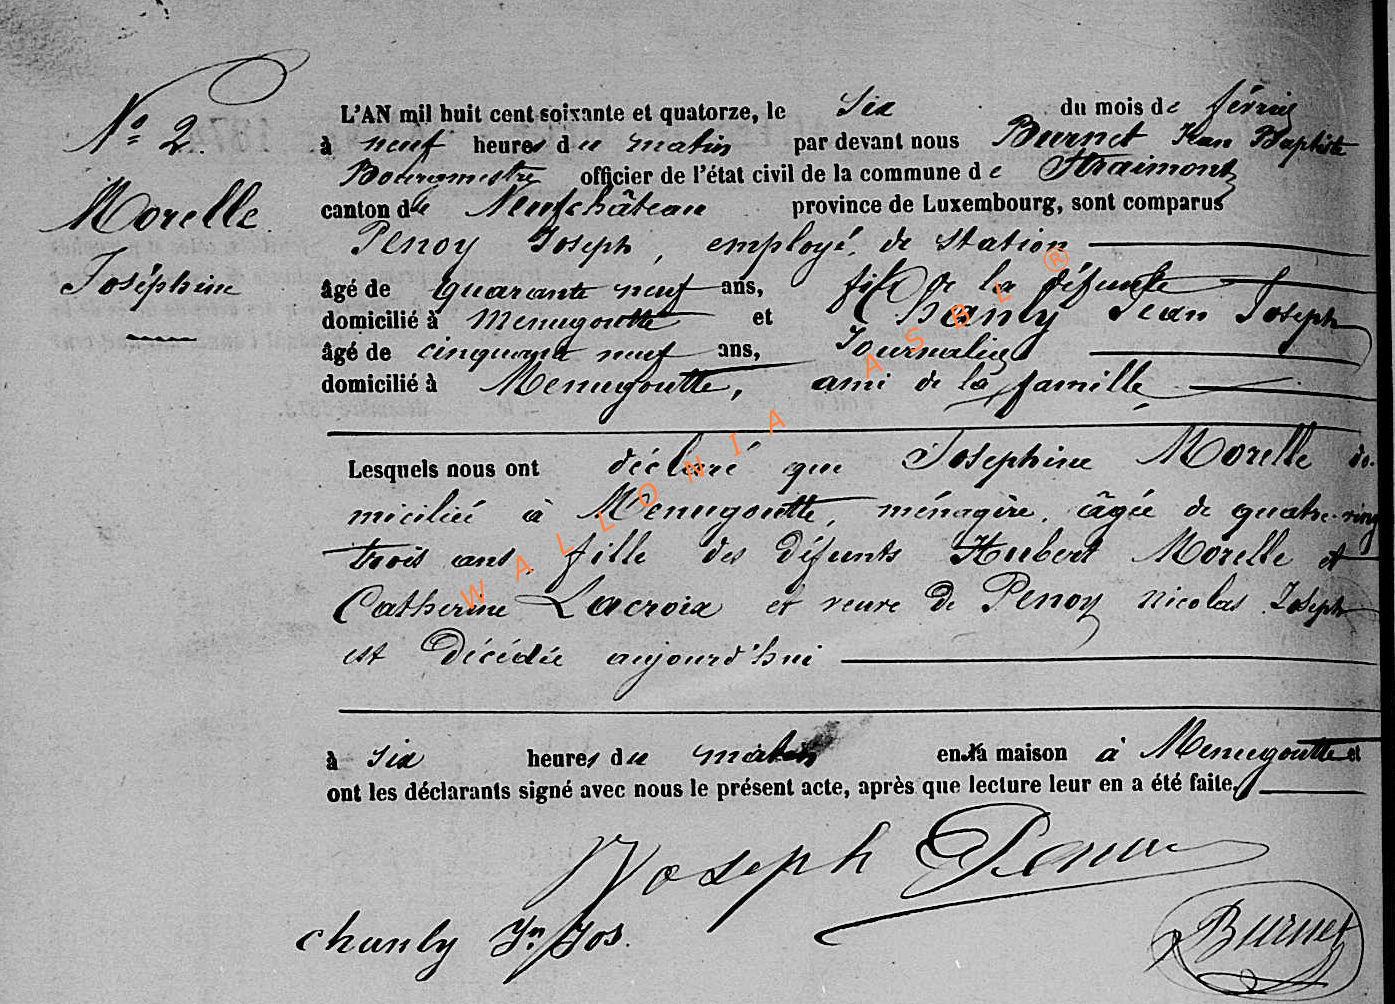 N° 2.
Morelle
Joséphine
L'AN mil huit cent soixante et quatorze, le six du mois de février
à neuf heures du matin par devant nous Burnet Jean Baptiste
Bourgmestre officier de l'état civil de la commune de Straimont
canton de Neufchâteau province de Luxembourg, sont comparus
Penoy Joseph, employé de station
âgé de quarante neuf ans, fils de la défunte
domicilié à Menugoutte et Chanly Jean Joseph
âgé de cinquante neuf ans, Journalier
domicilié à Menugoutte, ami de la famille
Lesquels nous ont déclaré que Josephine Morelle do-
miciliée à Menugoutte, ménagère, âgée de quatre-vingt
trois ans, fille des défunts Hubert Morelle et
Catherine Lacroix et veuve de Penoy Nicolas Joseph
est décédée aujourd'hui
à six heures du matin en sa maison à Menugoutte et
ont les déclarants signé avec nous le présent acte, après que lecture leur en a été faite.
Joseph Penoy
chanly Jn Jos.
Burnet
WALLONIA ASBL ®